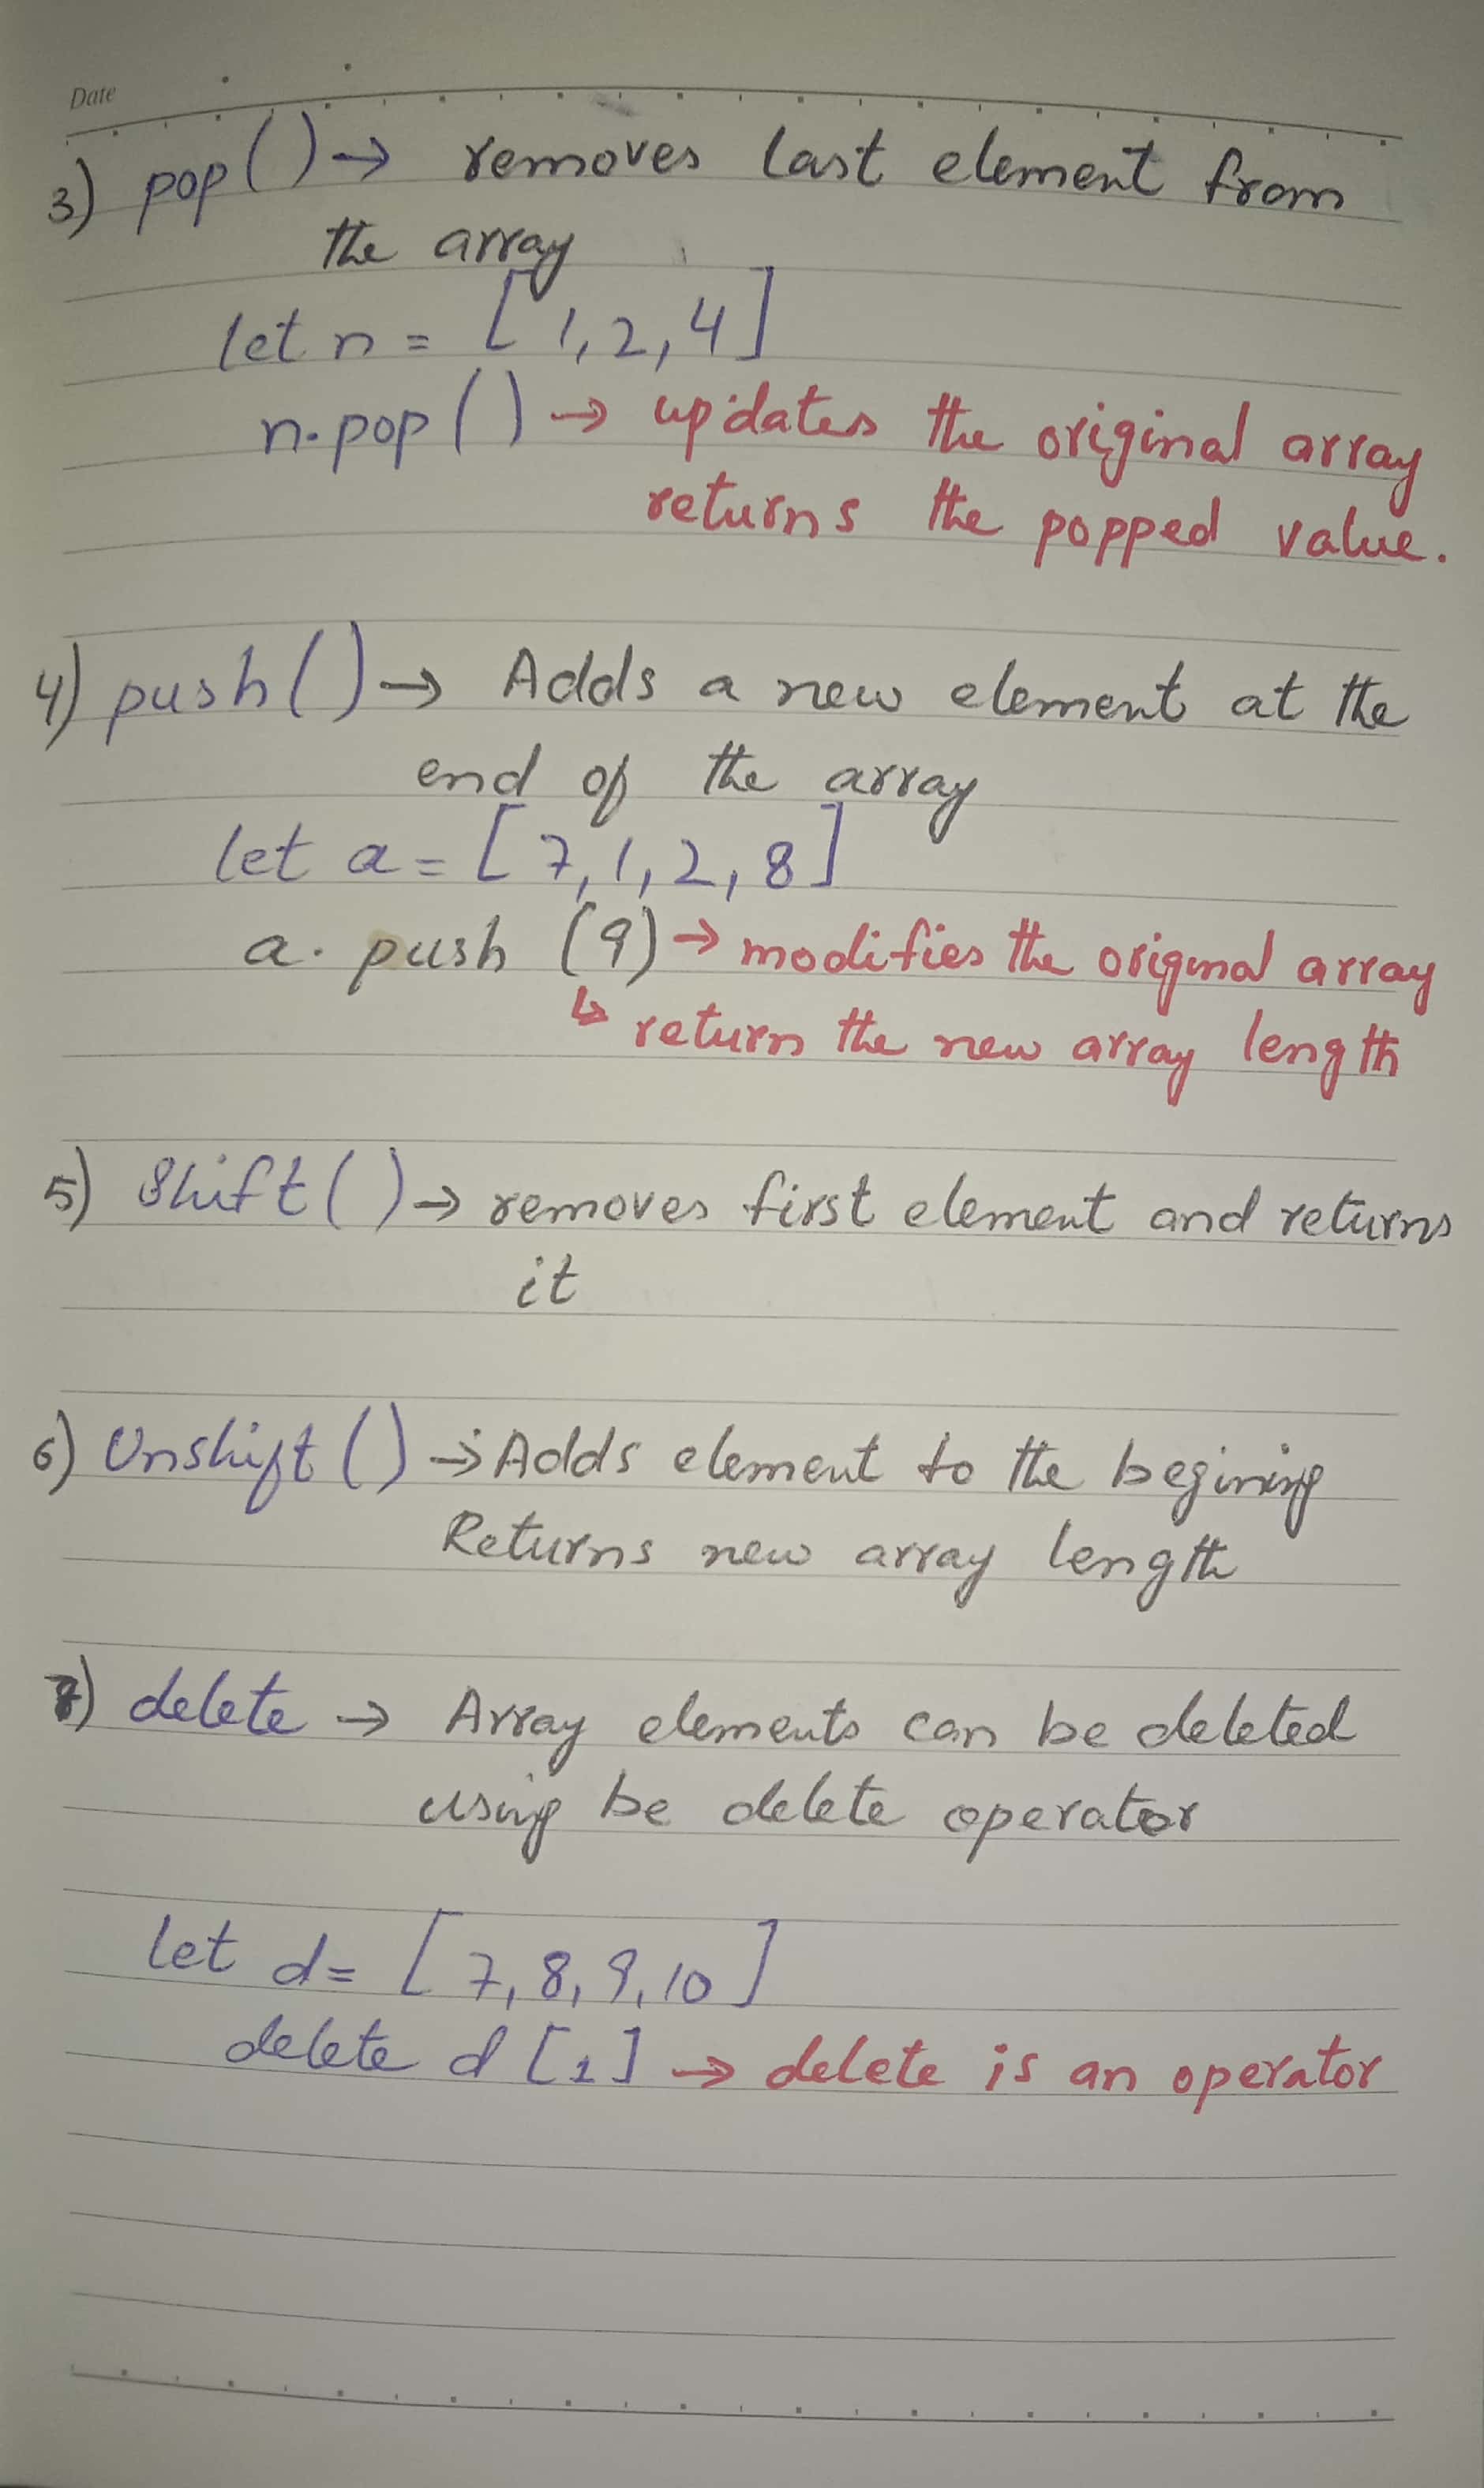 Date
3) pop() → removes last element from
the array
let n = [1,2,4]
n.pop() → updates the original array
returns the popped value.
4) push() → Adds a new element at the
end of the array
let a = [7,1,2,8]
a. push (9) → modifies the original array
↳ return the new array length
5) Shift() → removes first element and returns
it
6) Unshift() → Adds element to the begining
Returns new array length
7) delete → Array elements can be deleted
using be delete operator
let d= [7,8,9,10]
delete d[1] → delete is an operator